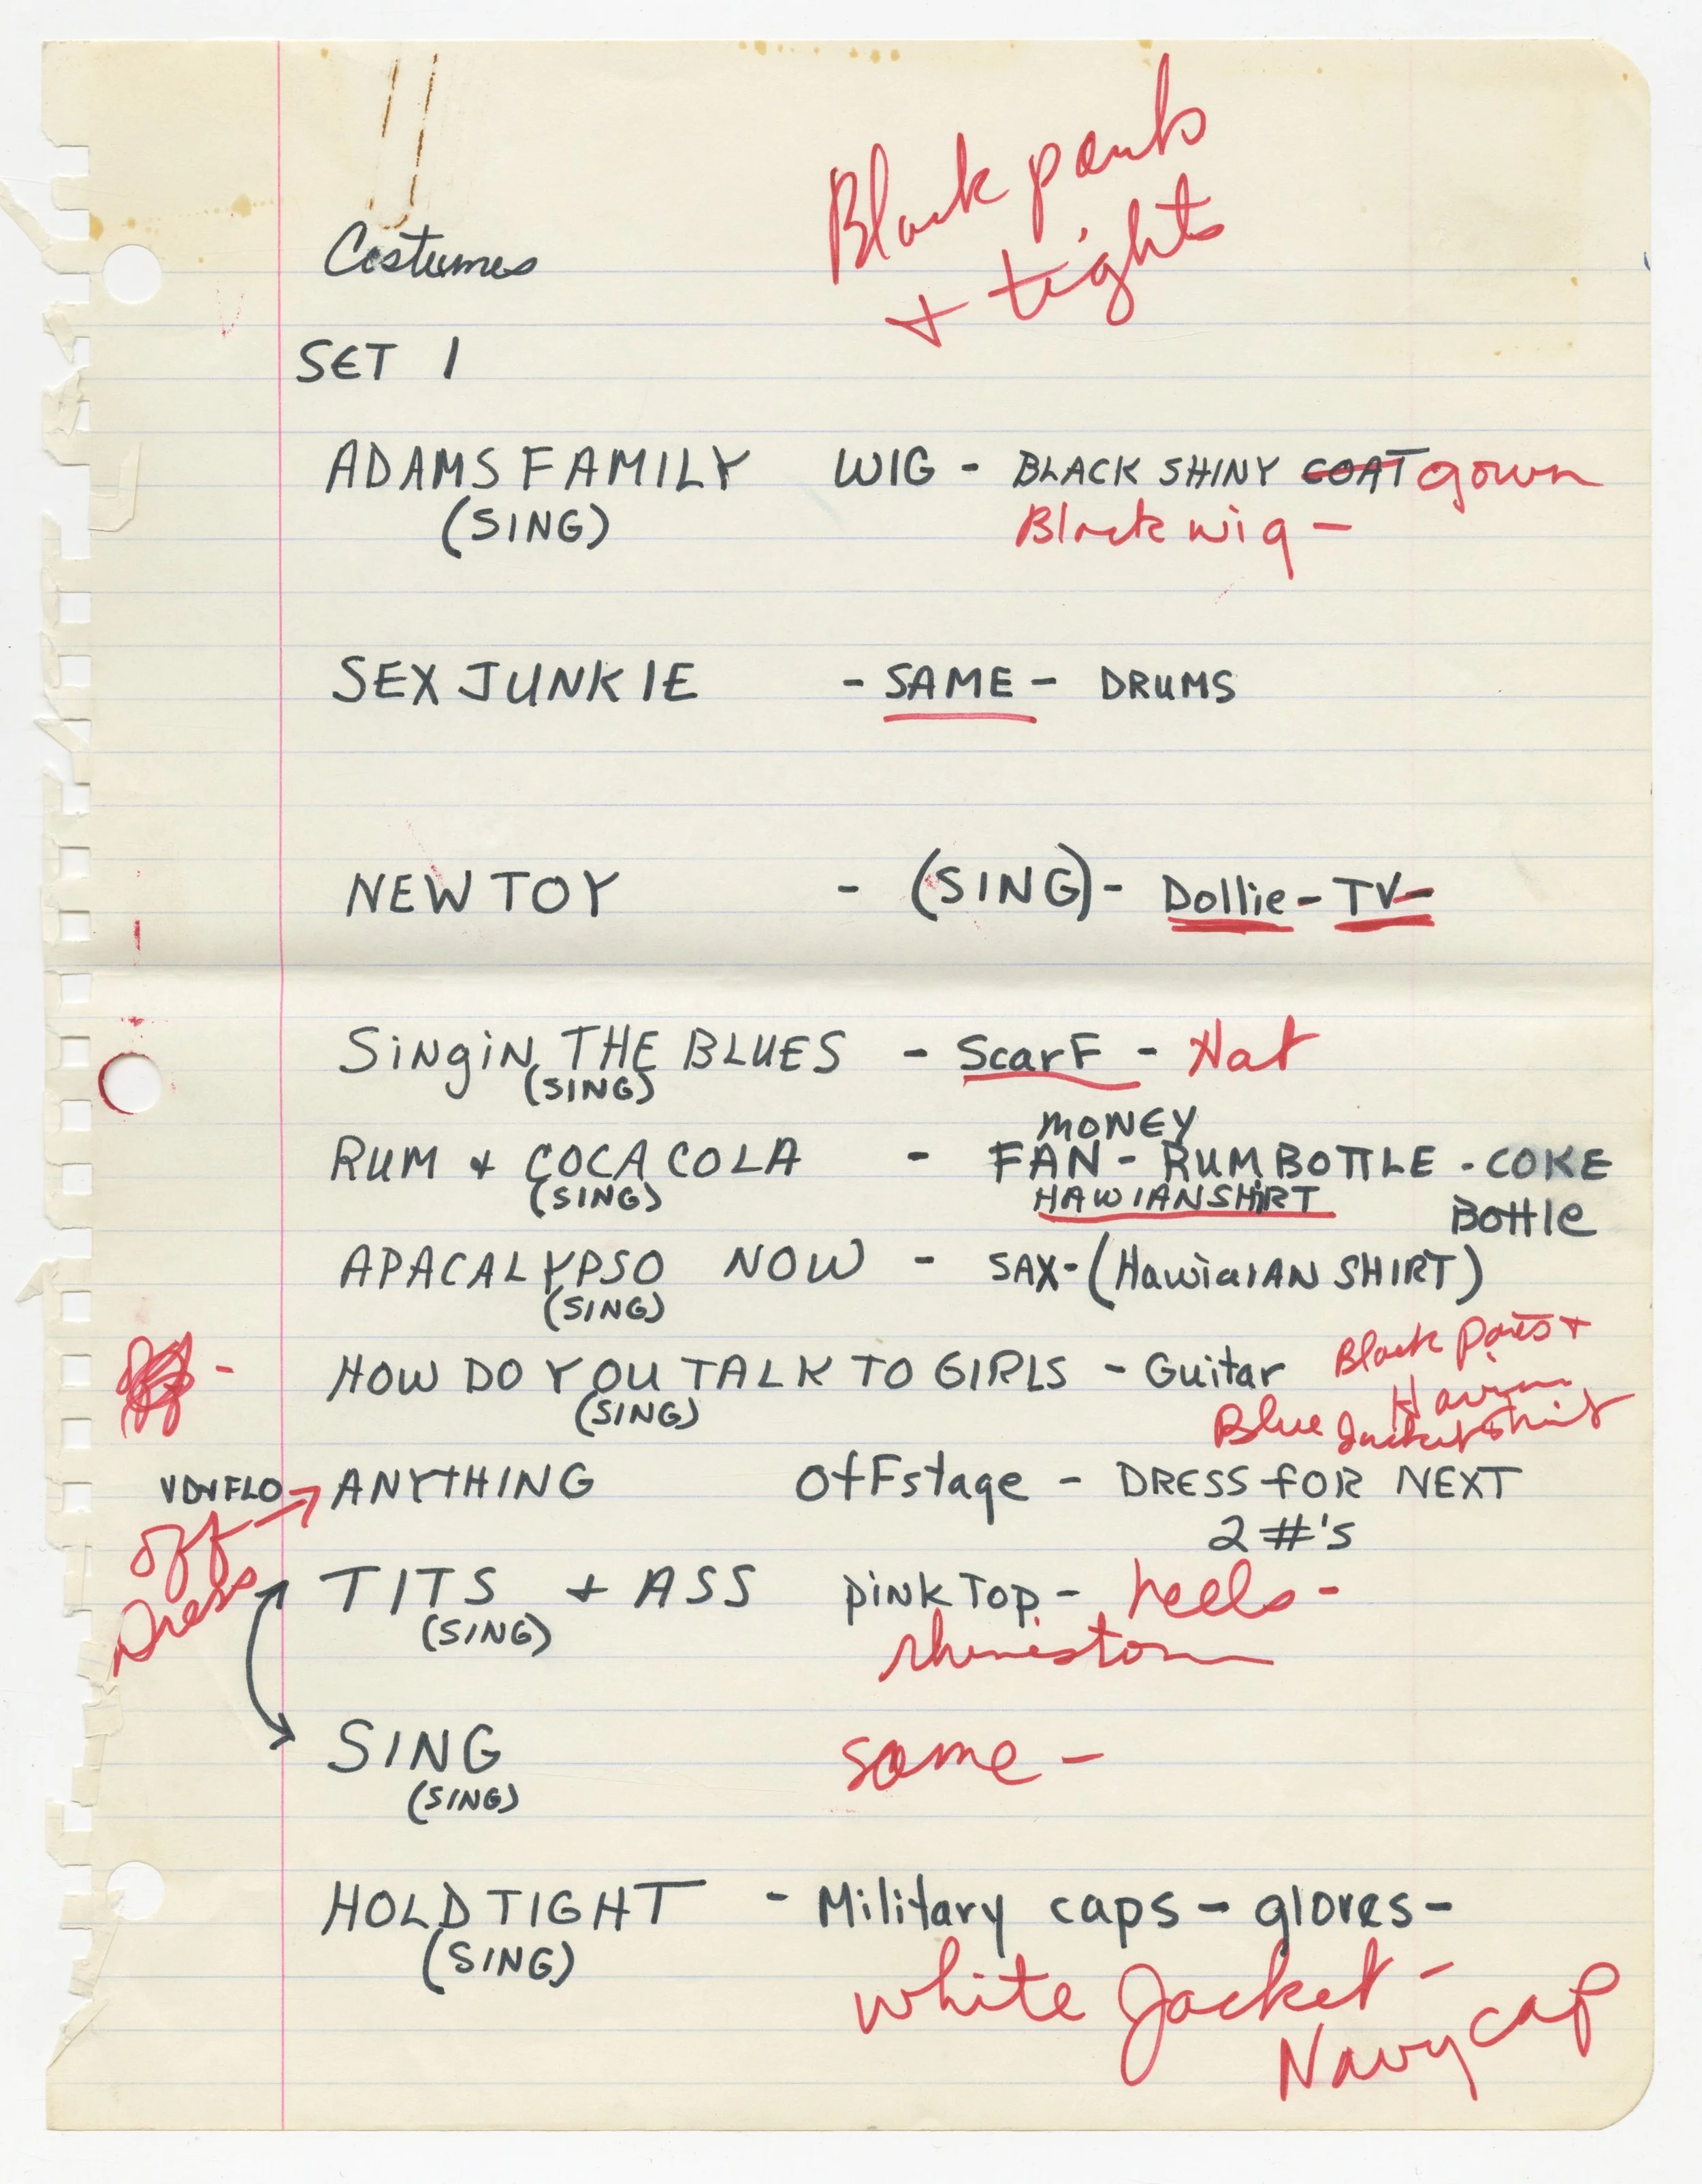 Black pants
+ tights
Costumes
SET 1
ADAMS FAMILY WIG - BLACK SHINY COAT gown
(SING) Black wig -
SEX JUNKIE - SAME - DRUMS
NEW TOY - (SING) - Dollie - TV -
SiNgiN THE BLUES - ScarF - Hat
(SING)
MONEY
RUM + COCA COLA - FAN - RUM BOTTLE - COKE
(SING) HAWIAN SHIRT BOttle
APACALYPSO NOW - SAX - (HawiaiAN SHIRT)
(SING)
Black pants +
HOW DO YOU TALK TO GIRLS - Guitar
(SING) Blue Jacket shirt
ANYTHING OfFstage - DRESS fOR NEXT
2 #'S
off
Dress
TITS + ASS piNK TOP - heels -
(SING) rhinestone
SING same -
(SING)
HOLD TIGHT - Military caps - gloves -
(SING) white Jacket -
Navy cap